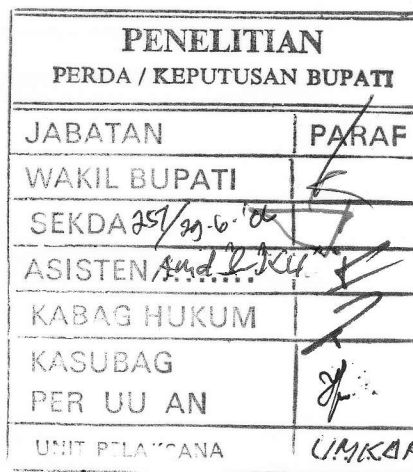 PENELITIAN
PERDA / KEPUTUSAN BUPATI
JABATAN PARAF
WAKIL BUPATI
SEKDA 257/29-6-'06
ASISTEN
KABAG HUKUM
KASUBAG
PER UU AN
UNIT PELAKSANA UMKAP